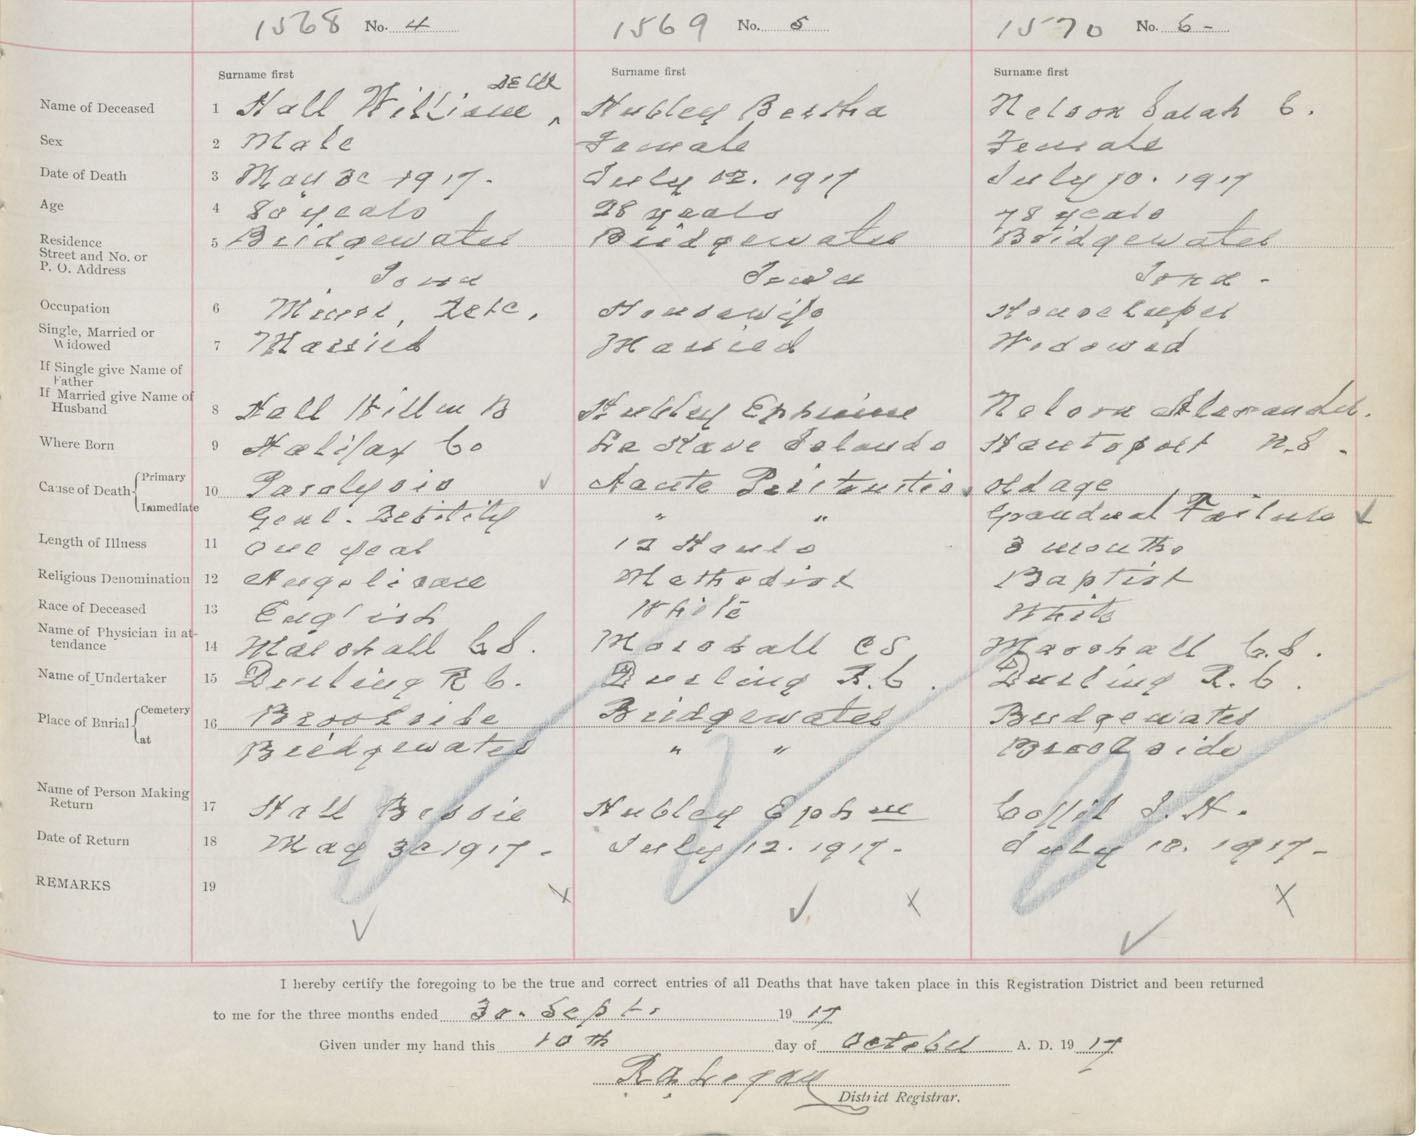 1568 No. 4 1569 No. 5 1570 No. 6 -
Surname first Surname first Surname first
Name of Deceased 1 Hall William Hubley Bertha Nelson Sarah C.
Sex 2 Male Female Female
Date of Death 3 May 30 1917. July 12. 1917 July 10. 1917
Age 4 80 years 28 years 78 years
Residence 5 Bridgewater Bridgewater Bridgewater
Street and No. or
P. O. Address Town Town Town -
Occupation 6 Miner, Retd. Housewife Housekeeper
Single, Married or
Widowed 7 Married Married Widowed
If Single give Name of
Father
If Married give Name of
Husband 8 Hall Willm B Hubley Ephriime Nelson Alexander.
Where Born 9 Halifax Co La Have Islands Hantsport N.S.
Cause of Death Primary 10 Paralysis Acute Peritonitis. old age
Immediate Genl. Debility " " Graudual Failure
Length of Illness 11 one year 12 Hours 3 months
Religious Denomination 12 Angelicane Methodist Baptist
Race of Deceased 13 English White White
Name of Physician in at-
tendance 14 Marshall C.S. Marshall C S Marshall C.S.
Name of Undertaker 15 Durling R C. Durling R.C. Durling R.C.
Place of Burial Cemetery 16 Brookside Bridgewater Bridgewater
at Bridgewater " " Brookside
Name of Person Making
Return 17 Hall Bessie Hubley Ephm Coffil H.
Date of Return 18 May 30 1917. July 12. 1917. July 10. 1917.
REMARKS 19
I hereby certify the foregoing to be the true and correct entries of all Deaths that have taken place in this Registration District and been returned
to me for the three months ended 30. Sept. 19 17
Given under my hand this 10th day of October A. D. 19 17
R.A. Logan
District Registrar.